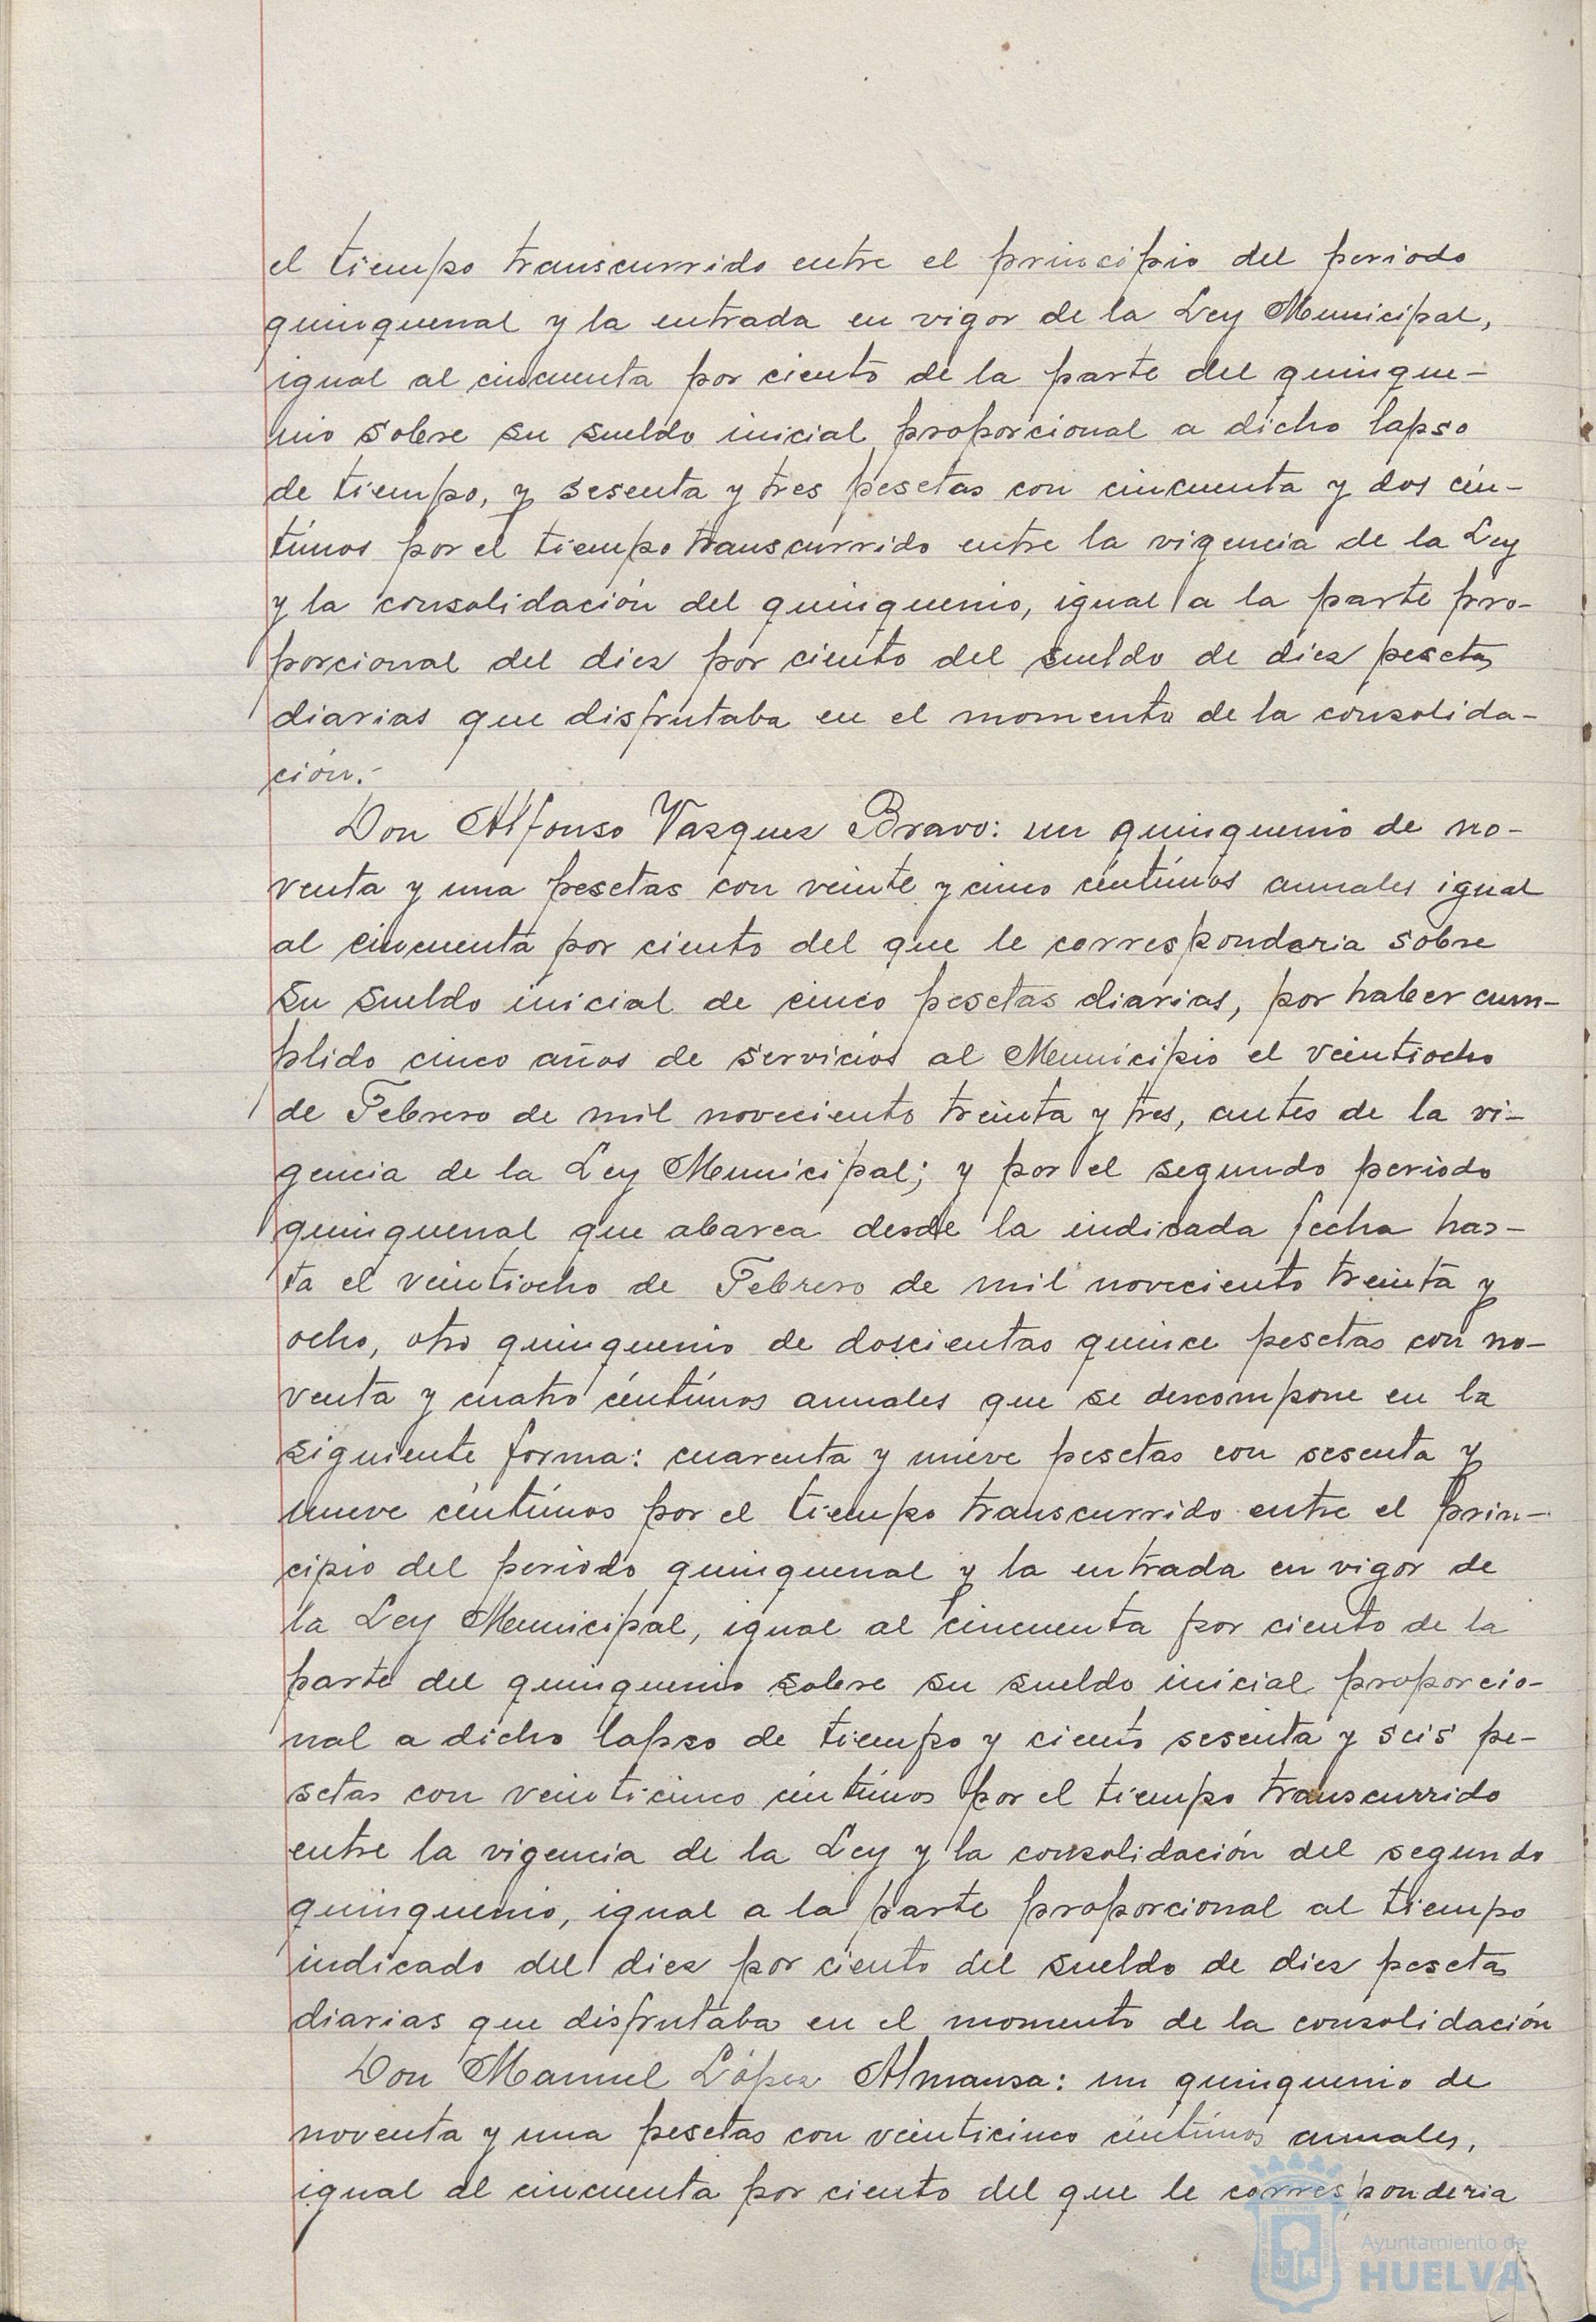 el tiempo transcurrido entre el principio del periodo
quinquenal y la entrada en vigor de la Ley Municipal,
igual al cincuenta por ciento de la parte del quinque-
nio sobre su sueldo inicial proporcional a dicho lapso
de tiempo, y sesenta y tres pesetas con cincuenta y dos cén-
timos por el tiempo transcurrido entre la vigencia de la Ley
y la consolidación del quinquenio, igual a la parte pro-
porcional del diez por ciento del sueldo de diez pesetas
diarias que disfrutaba en el momento de la consolida-
ción.-
Don Alfonso Vazquez Bravo: un quinquenio de no-
venta y una pesetas con veinte y cinco céntimos anuales igual
al cincuenta por ciento del que le correspondaria sobre
su sueldo inicial de cinco pesetas diarias, por haber cum-
plido cinco años de servicios al Municipio el veintiocho
de Febrero de mil noveciento treinta y tres, antes de la vi-
gencia de la Ley Municipal; y por el segundo periodo
quinquenal que abarca desde la indicada fecha has-
ta el veintiocho de Febrero de mil noveciento treinta y
ocho, otro quinquenio de doscientas quince pesetas con no-
venta y cuatro céntimos anuales que se descompone en la
siguiente forma: cuarenta y nueve pesetas con sesenta y
nueve céntimos por el tiempo transcurrido entre el prin-
cipio del periodo quinquenal y la entrada en vigor de
la Ley Municipal, igual al cincuenta por ciento de la
parte del quinquenio sobre su sueldo inicial proporcio-
nal a dicho lapso de tiempo y ciento sesenta y seis pe-
setas con veinticinco céntimos por el tiempo transcurrido
entre la vigencia de la Ley y la consolidación del segundo
quinquenio, igual a la parte proporcional al tiempo
indicado del diez por ciento del sueldo de diez pesetas
diarias que disfrutaba en el momento de la consolidación
Don Manuel López Almansa: un quinquenio de
noventa y una pesetas con veinticinco céntimos anuales,
igual al cincuenta por ciento del que le corresponderia
Ayuntamiento de
HUELVA